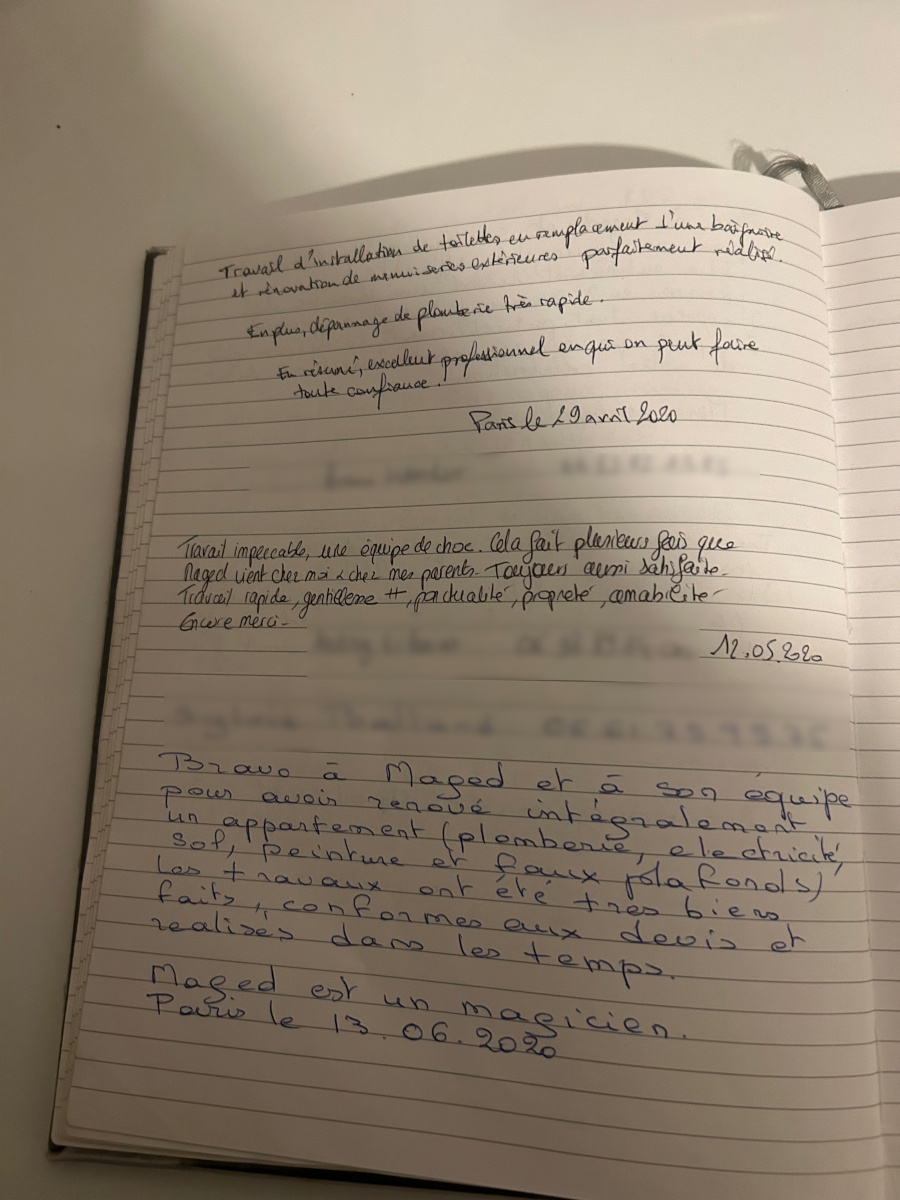 Travail d'installation de toilettes en remplacement d'une baignoire
et rénovation de menuiseries extérieures parfaitement réalisé.
En plus, dépannage de plomberie très rapide.
En résumé, excellent professionnel en qui on peut faire
toute confiance.
Paris le 29 avril 2020
Travail impeccable, une équipe de choc. Cela fait plusieurs fois que
Maged vient chez moi & chez mes parents. Toujours aussi satisfaite.
Travail rapide, gentillesse ++, ponctualité, propreté, amabilité -
Encore merci -
12.05.2020
Bravo à Maged et à son équipe
pour avoir renové intégralement
un appartement (plomberie, electricité,
sol, peinture et faux plafonds)
Les travaux ont été tres biens
faits, conformes aux devis et
realisés dans les temps.
Maged est un magicien.
Paris le 13.06.2020